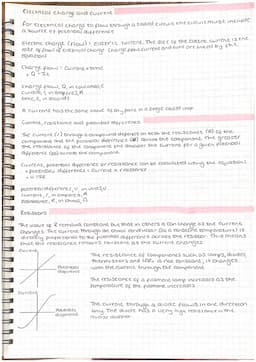 Electrical charge and current
For electrical charge to flow through a closed circuit the circuit must include
a source of potential difference
Electric charge (flow) = electric current. The size of the electric current is the
rate of flow of electrical charge. Charge flow, current and time are linked by the
equation:
Charge flow = Current × time
Q = It
charge flow, Q, in coulombs, C
current, I, in amperes, A
time, t, in seconds
A current has the same value at any point in a single closed loop
Current, resistance and potential difference
The current (I) through a component depends on both the resistance (R) of the
component and the potential difference (V) across the component. The greater
the resistance of the component the smaller the current for a given potential
difference (pd) across the component.
Current, potential difference or resistance can be calculated using the equation:
potential difference = current × resistance
V = IR
potential difference, V, in volts, V
current, I, in amperes, A
resistance, R, in ohms, Ω
Resistors
The value of R remains constant but that in others it can change as the current
changes. The current through an ohmic conductor (at a constant temperature) is
directly proportional to the potential difference across the resistor. This means
that the resistance remains constant as the current changes.
Current
Potential
difference
The resistance of components such as lamps, diodes,
thermistors and LDRs is not constant, it changes
with the current through the component
The resistance of a filament lamp increases as the
temperature of the filament increases
Current
Potential
difference
The current through a diode flows in one direction
only. The diode has a very high resistance in the
reverse direction